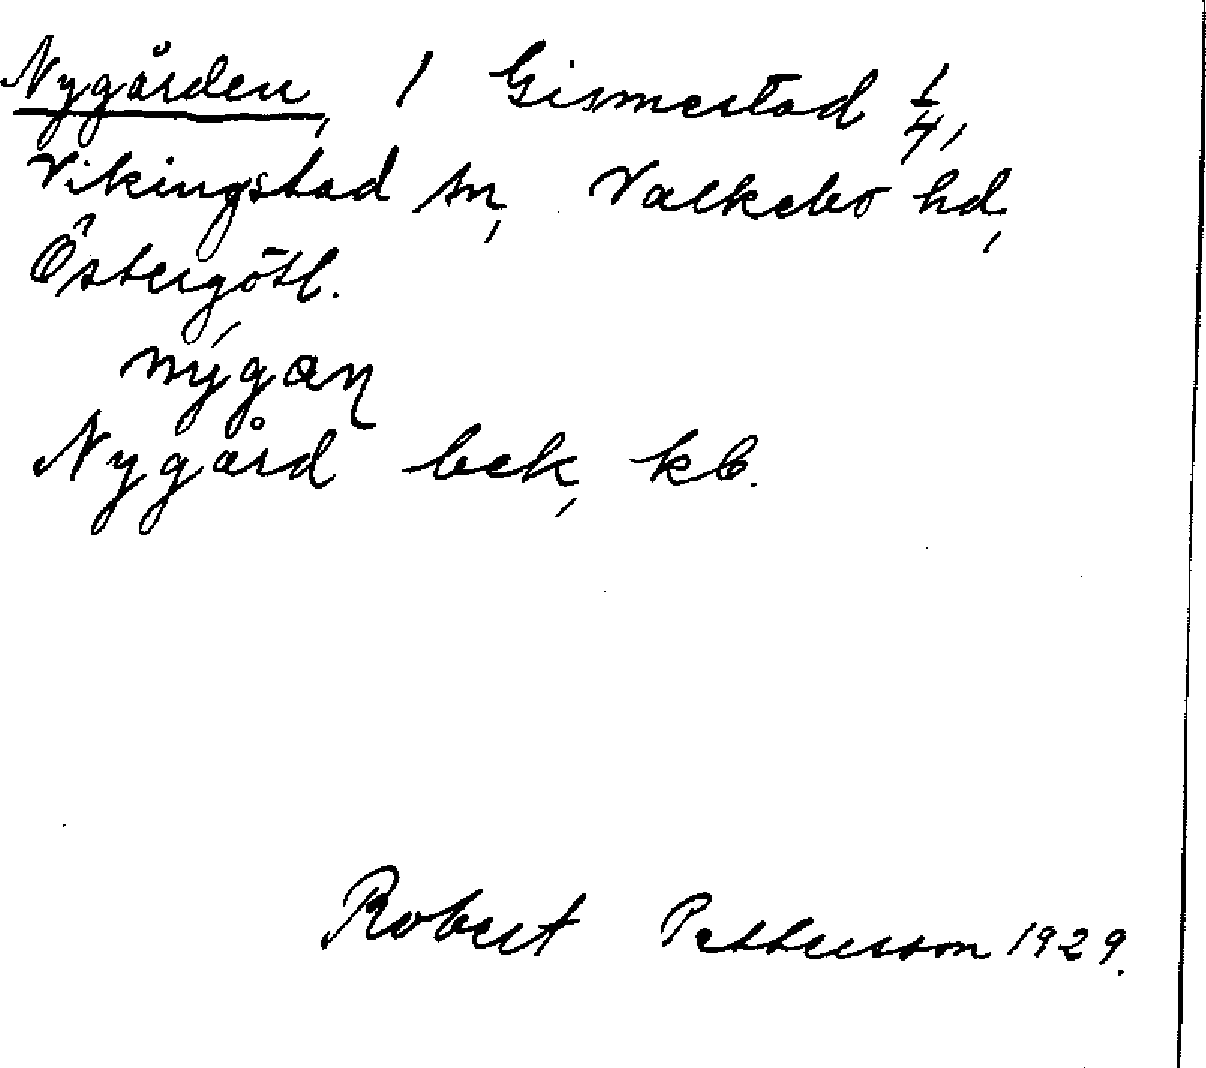 Nygården, 1 Gismestad 1/4,
Vikingstad sn, Valkebo hd,
Östergötl.
nýgaɳ
Nygård bek, kb.
Robert Pettersson 1929.